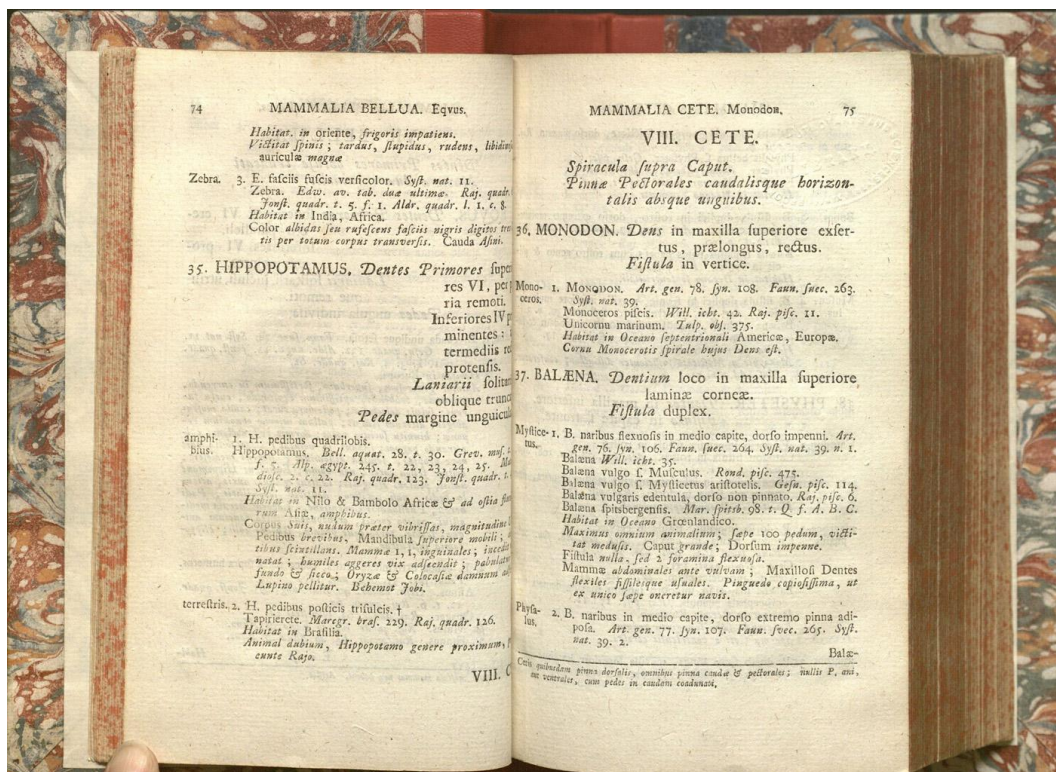 74 MAMMALIA BELLUA. Eqvus.
Habitat. in oriente, frigoris impatiens.
Victitat spinis; tardus, stupidus, rudens,
auriculæ magnæ
Zebra. 3. E. fasciis fuscis versicolor. Syst. nat. 11.
Zebra. Edw. av. tab. duæ ultimæ. Raj. quadr.
Jonst. quadr. t. 5. f. 1. Aldr. quadr. l. 1. c. 8.
Habitat in India, Africa.
Color albidus seu rufescens fasciis nigris digitos
tis per totum corpus transversis. Cauda Asini.
35. HIPPOPOTAMUS. Dentes Primores
res VI, per
ria remoti.
Inferiores IV
minentes:
termediis
protensis.
Laniarii
oblique
Pedes margine
amphi- 1. H. pedibus quadrilobis.
bius. Hippopotamus. Bell. aquat. 28. t. 30. Grev. mus.
f. 5. Alp. ægypt. 245. t. 22, 23, 24, 25.
diosc. 2. c. 22. Raj. quadr. 123. Jonst. quadr. t.
Syst. nat. 11.
Habitat in Nilo & Bambolo Africæ & ad ostia
rum Asiæ, amphibus.
Corpus Suis, nudum præter vibrissas, magnitudine
Pedibus brevibus, Mandibula superiore mobili,
tibus scintillans. Mammæ 1, 1, inguinales;
natat; humiles aggeres vix adscendit;
fundo & sicco; Oryzæ & Colocasiæ damnum
Lupino pellitur. Behemot Jobi.
terrestris. 2. H. pedibus posticis trisulcis. †
Tapirierete. Marcgr. bras. 229. Raj. quadr. 126.
Habitat in Brasilia.
Animal dubium, Hippopotamo genere proximum,
cunte Rajo.
VIII. C
MAMMALIA CETE. Monodon. 75
VIII. CETE.
Spiracula supra Caput.
Pinnæ Pectorales caudalisque horizon-
talis absque unguibus.
36. MONODON. Dens in maxilla superiore exser-
tus, prælongus, rectus.
Fistula in vertice.
Mono- 1. MONODON. Art. gen. 78. syn. 108. Faun. suec. 263.
ceros. Syst. nat. 39.
Monoceros piscis. Will. icht. 42. Raj. pisc. 11.
Unicornu marinum. Tulp. obs. 375.
Habitat in Oceano septentrionali Americæ, Europæ.
Cornu Monocerotis spirale hujus Dens est.
37. BALÆNA. Dentium loco in maxilla superiore
laminæ corneæ.
Fistula duplex.
Mystice- 1. B. naribus flexuosis in medio capite, dorso impenni. Art.
tus. gen. 76. syn. 106. Faun. suec. 264. Syst. nat. 39. n. 1.
Balæna Will. icht. 35.
Balæna vulgo s. Musculus. Rond. pisc. 475.
Balæna vulgo s. Mysticetus aristotelis. Gesn. pisc. 114.
Balæna vulgaris edentula, dorso non pinnato. Raj. pisc. 6.
Balæna spitsbergensis. Mar. spitsb. 98. t. Q. f. A. B. C.
Habitat in Oceano Grœnlandico.
Maximus omnium animalium; sæpe 100 pedum, victi-
tat medusis. Caput grande; Dorsum impenne.
Fistula nulla, sed 2 foramina flexuosa.
Mammæ abdominales ante vulvam; Maxillosi Dentes
flexiles fissilesque usuales. Pinguedo copiosissima, ut
ex unico sæpe oneretur navis.
Physa- 2. B. naribus in medio capite, dorso extremo pinna adi-
lus. posa. Art. gen. 77. syn. 107. Faun. svec. 265. Syst.
nat. 39. 2.
Balæ-
Cetis quibusdam pinna dorsalis, omnibus pinna caudæ & pectorales; nullis P. ani,
aut ventrales, cum pedes in caudam coadunati.